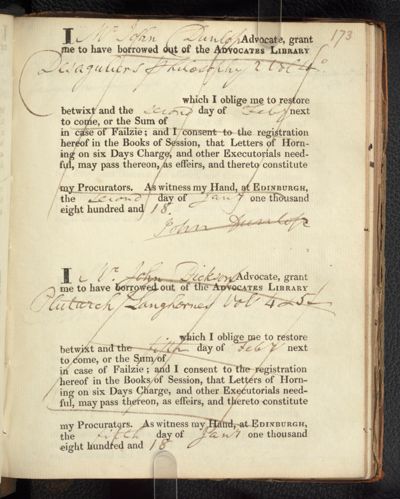 173
I Mr John Dunlop Advocate, grant
me to have borrowed out of the ADVOCATES LIBRARY
Desaguliers Philosophy 2 Vol 4o
which I oblige me to restore
betwixt and the second day of Feby next
to come, or the Sum of
in case of Failzie; and I consent to the registration
hereof in the Books of Session, that Letters of Horn-
ing on six Days Charge, and other Executorials need-
ful, may pass thereon, as effeirs, and thereto constitute
my Procurators. As witness my Hand, at EDINBURGH,
the second day of Jany one thousand
eight hundred and 18
John Dunlop
I Mr John Dickson Advocate, grant
me to have borrowed out of the ADVOCATES LIBRARY
Plutarch Langhornes Vol 4 & 5
which I oblige me to restore
betwixt and the fifth day of Feby next
to come, or the Sum of
in case of Failzie; and I consent to the registration
hereof in the Books of Session, that Letters of Horn-
ing on six Days Charge, and other Executorials need-
ful, may pass thereon, as effeirs, and thereto constitute
my Procurators. As witness my Hand, at EDINBURGH,
the fifth day of Jany one thousand
eight hundred and 18